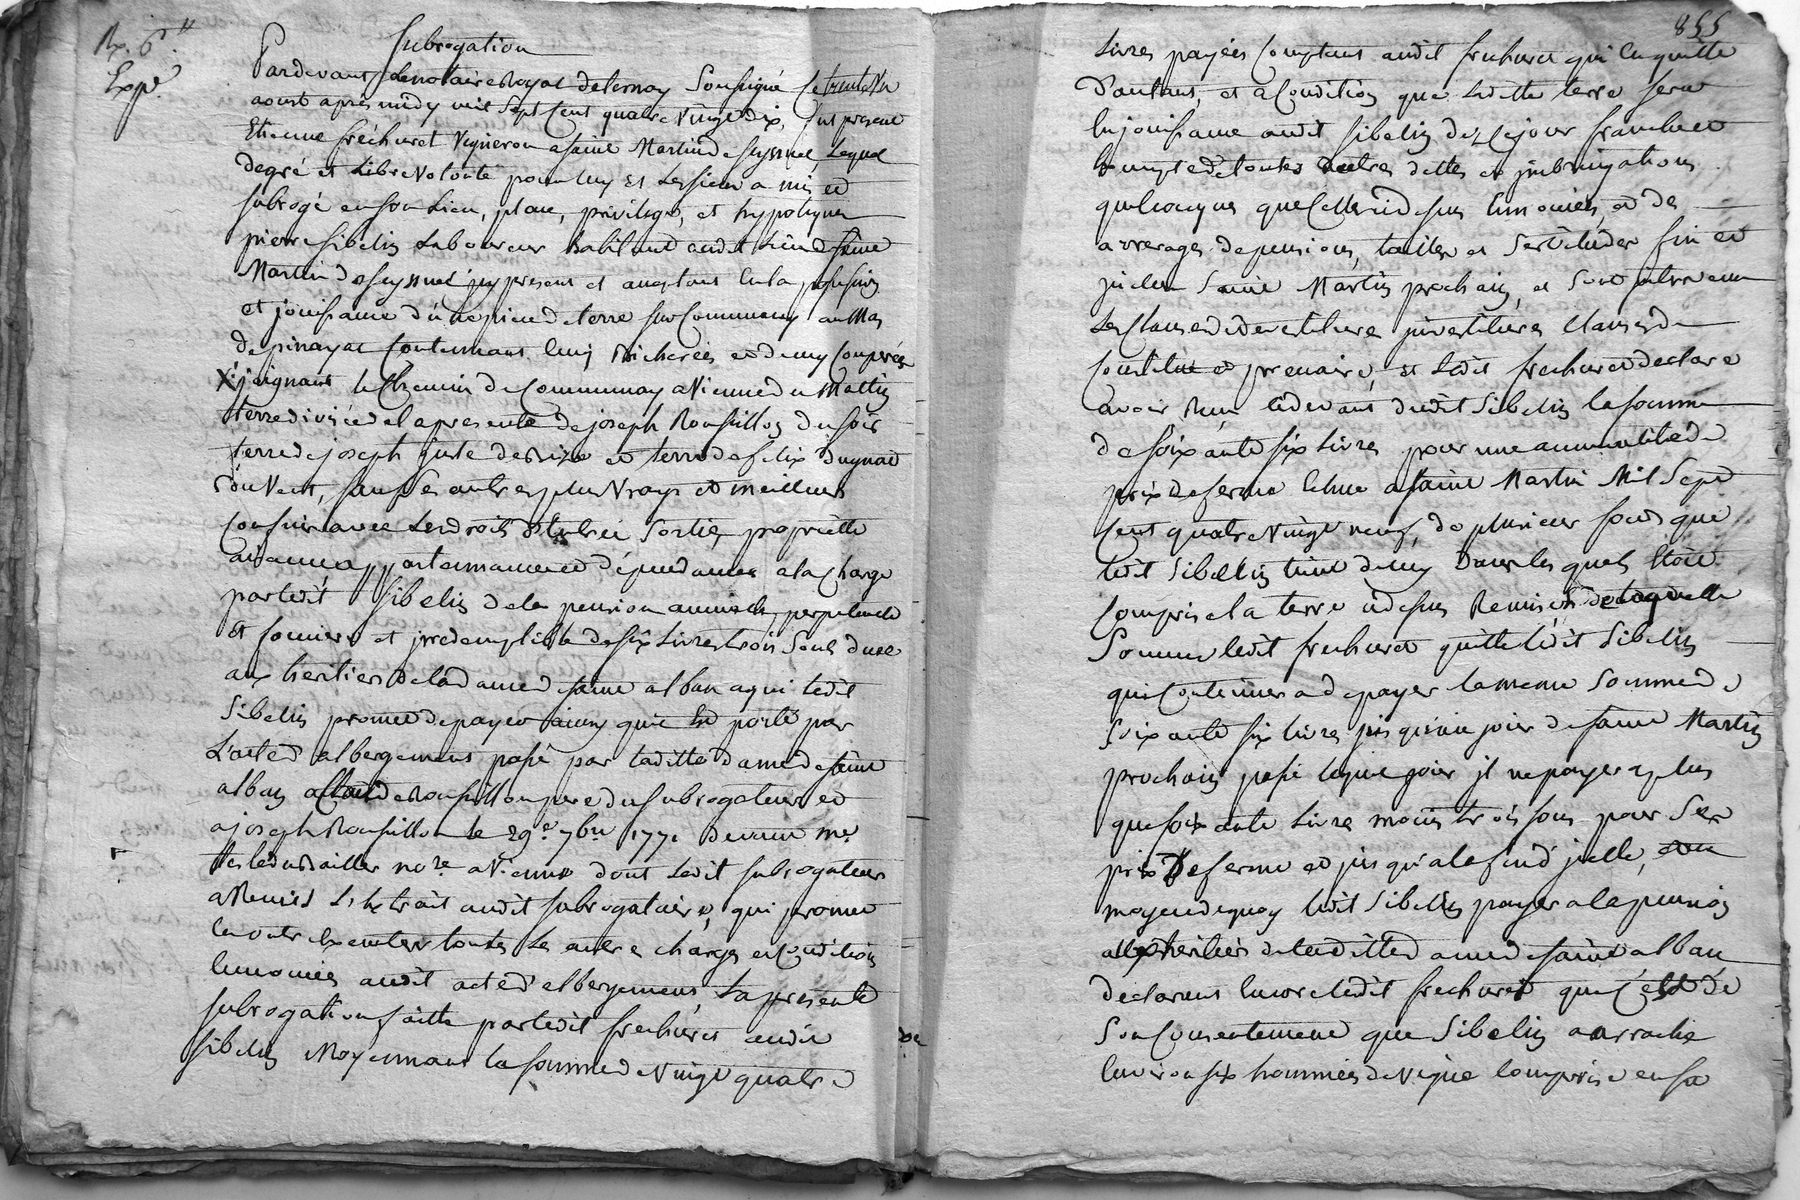 Rx. 6.ᴸᴸ
Exp.é
Subrogation
Pardevant Le notaire Royal de ternay Soussigné Ce trente Un
aoust après midy mil Sept Cent quatre Vingt dix, fut present
Etienne frécheret Vigneron a saint Martin de seyssuel Lequel
de gré et Libre Volonté pour luy et Les siens a mis et
subrogé en son Lieu, place, privilege, et hypoteques
pierre sibelin Laboureur habitant audit Lieu de saint
Martin de seyssuel icy present et aceptant En la possession
et jouissance d'une piece de terre sur Communay au Mas
de pinayat Contenant Cinq Bicherées et demy Couperée
X joignant le Chemin de Communay a Vienne du Mattin
terre divisée de la presente de joseph Roussillon du soir
terre de joseph Guste de Bize et terre de felix Dugnat
du Vent, sauf ses autres plus Vrays et meilleurs
Confins avec Les droits d'Entrée Sortie, propriété
aisances appartenances et dépendances a la Charge
par ledit Sibelin de la pension annuelle, perpetuelle
et fonciere et jrredemptible de six Livres trois Sous düe
aux heritiers de la dame de saint alban a qui ledit
Sibelin promet de payer ainsy qu'il Est porté par
L'acte d'albergement passé par laditte dame de saint
alban a Claude Roussillon pere du subrogateur et
a joseph Roussillon le 29.e 7bre 1771 devant me.
no.re a Vienne dont Ledit subrogateur
a Remis L'Extrait audit subrogataire, qui promet
En outre Executer toutes Les autres charges et Conditions
Enoncées audit acte d'albergement, La presente
subrogation faitte par ledit frecheret audit
sibelin Moyennant la somme de Vingt quatre
855
Livres payées Comptant audit frecheret qui En quitte
D'autant, et a Condition que Laditte terre sera
En jouissance audit sibelin dez Ce jour franche et
Exempte de toutes autres dettes et jmbrigations
quelconques que Celles cy dessus Enoncées, et de
arrerages de pensions, tailles et Servitudes fin et
jusqu'a Saint Martin prochain, et Sont intervenu
Les Clauses de devestiture investiture Clauses de
Constitut et precaire, et Ledit frecheret declare
avoir Reçu cidevant dudit Sibelin la somme
de soixante six Livres pour une annuitté de
prix de ferme Echue a saint Martin Mil Sept
Cent quatre Vingt neuf, de plusieurs fonds que
ledit Sibelin tient de luy Dans les quels Etoit
Comprise la terre cidessus Remise, de laquelle
Somme ledit frecheret quitte ledit Sibelin
qui Continuera de payer la meme Somme de
soixante six livres jusqu'au jour de saint Martin
prochain passé lequel jour jl ne payera plus
que soixante Livres moins trois sous pour Ses
prix De ferme et jusqu'a la fin d'jcelle,
moyen de quoy ledit Sibelin payera la pension
aux heritiers de laditte dame de saint alban
declarant Encore ledit frecheret que C'est de
Son Consentement que Sibelin a arraché
Environ six hommées de Vigne Comprise en sa